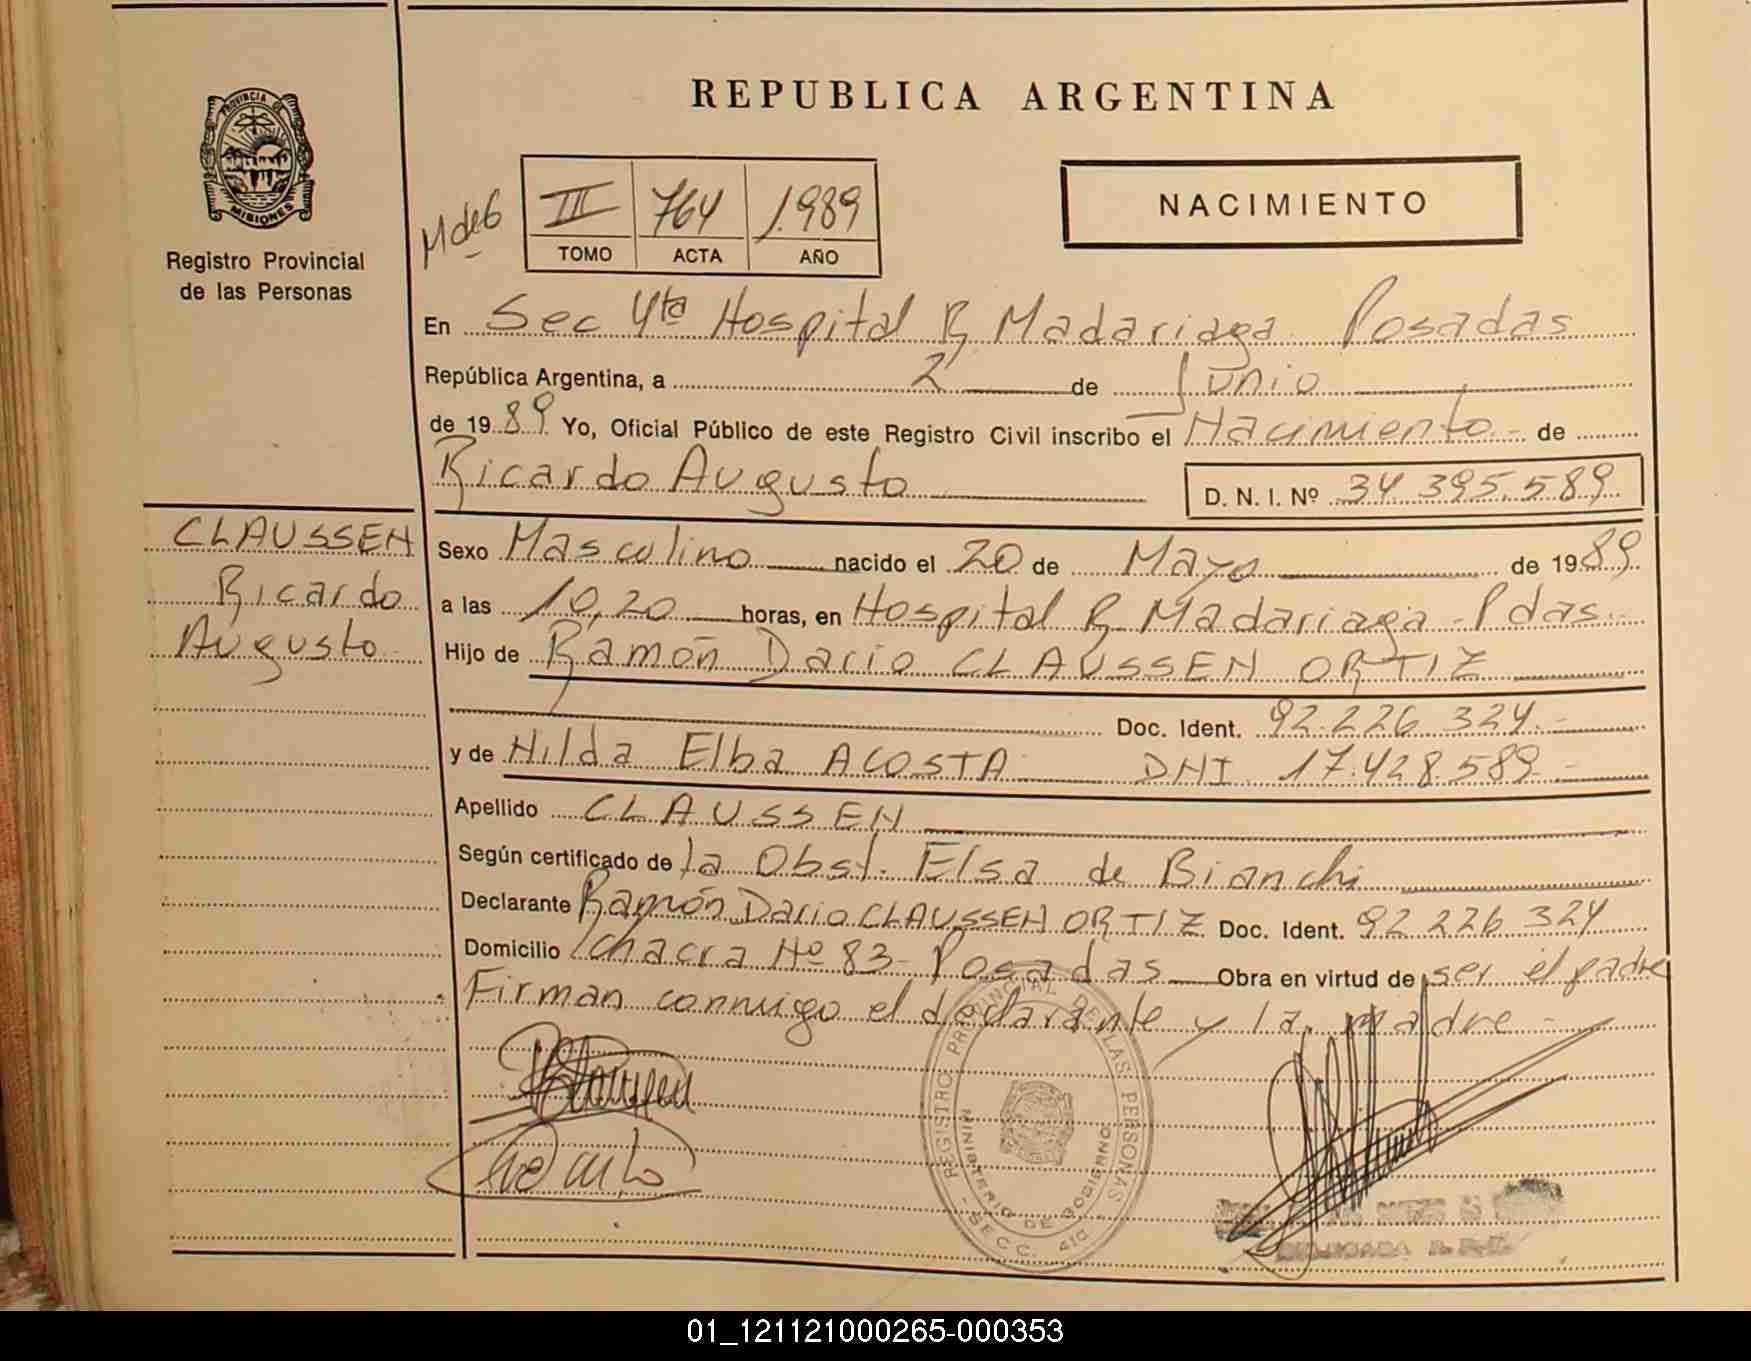 PROVINCIA DE
MISIONES
Registro Provincial
de las Personas
REPUBLICA ARGENTINA
NACIMIENTO
M de 6
III 764 1.989
TOMO ACTA AÑO
En Sec 4ta Hospital R Madariaga Posadas
República Argentina, a 2 de Junio
de 1989 Yo, Oficial Público de este Registro Civil inscribo el Nacimiento de
Ricardo Augusto D. N. I. Nº 34 395.589
CLAUSSEN
Ricardo
Augusto
Sexo Masculino nacido el 20 de Mayo de 1989
a las 10,20 horas, en Hospital R Madariaga - Pdas
Hijo de Ramón Dario CLAUSSEN ORTIZ
Doc. Ident. 92.226 324.-
y de Hilda Elba ACOSTA DNI 17.428.589.-
Apellido CLAUSSEN
Según certificado de la Obst. Elsa de Bianchi
Declarante Ramón Dario CLAUSSEN ORTIZ Doc. Ident. 92 226 324
Domicilio chacra Nº 83 - Posadas Obra en virtud de ser el padre
Firman conmigo el declarante y la madre -
REGISTRO PROVINCIAL DE LAS PERSONAS
MINISTERIO DE GOBIERNO
- SECC. 4ta.
01_121121000265-000353